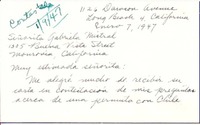 Contestada
1/9/47
1126 Dawson Avenue
Long Beach, California
Enero 7, 1947
Señorita Gabriela Mistral
1305 Buena Vista Street
Monrovia California
Muy estimada señorita:
Me alegré mucho de recibir su
carta en contestación de mis preguntas
acerca de una permuta con Chile